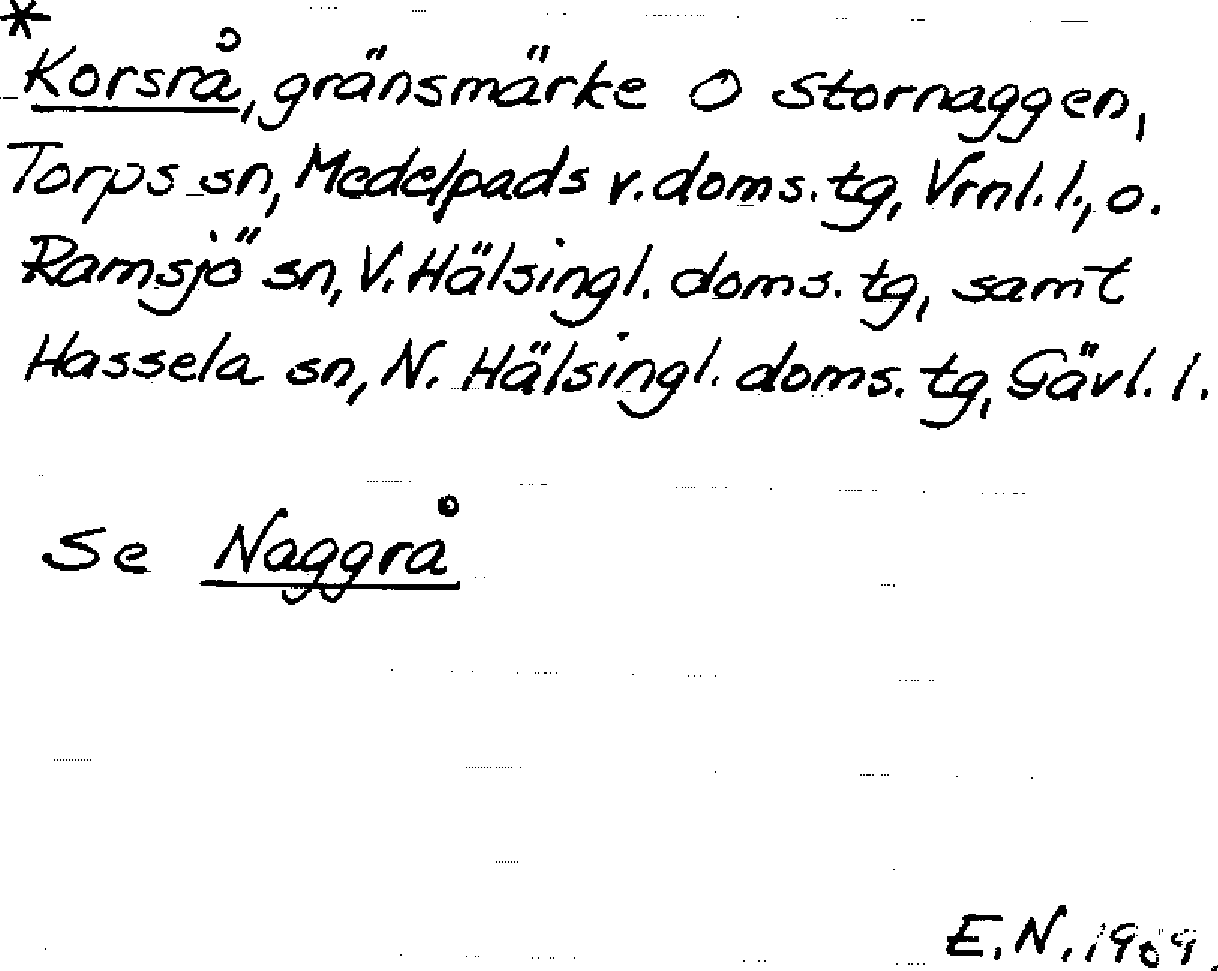 *
Korsrå, gränsmärke O Stornaggen,
Torps sn, Medelpads v. doms. tg, Vrnl. l., o.
Ramsjö sn, V. Hälsingl. doms. tg, samt
Hassela sn, N. Hälsingl. doms. tg, Gävl. l.
Se Naggrå
E. N. 1969.